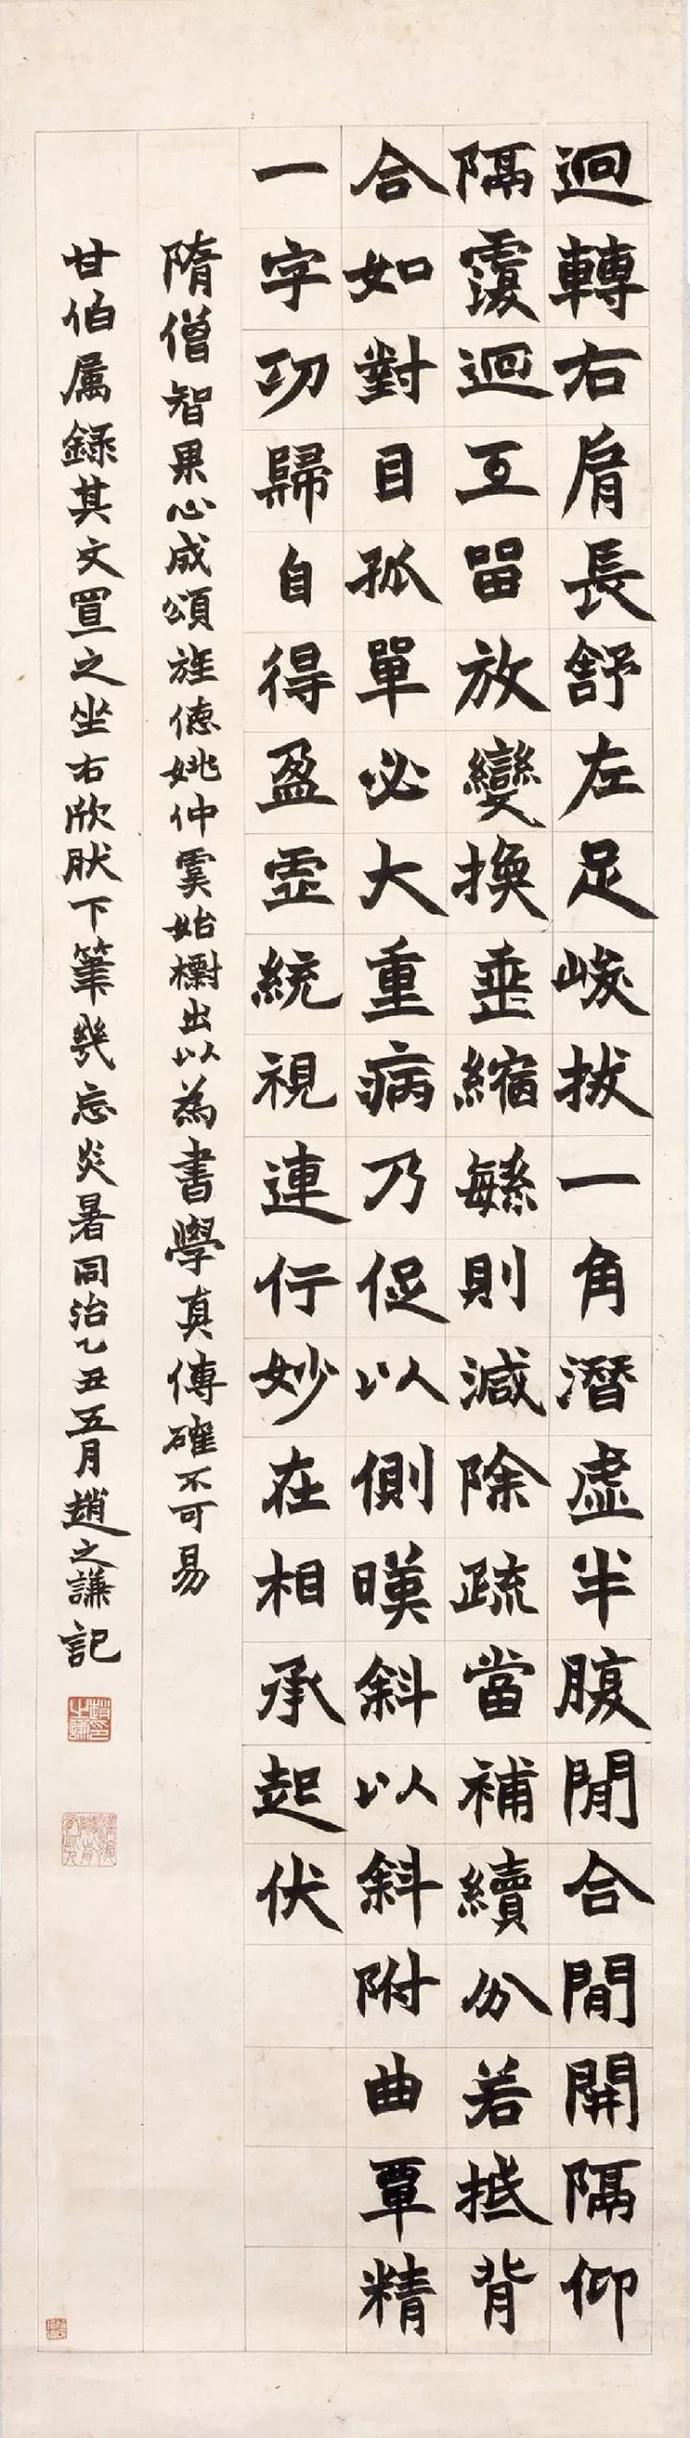 迴轉右肩長舒左足峻拔一角潛虛半腹間合間開隔仰
隔覆迴互留放變換垂縮繁則減除疏當補續分若抵背
合如對目孤單必大重病乃促以側暎斜以斜附曲覃精
一字功歸自得盈虛統視連行妙在相承起伏
隋僧智果心成頌旌德姚仲虞始櫥出以為書學真傳確不可易
甘伯属錄其文置之坐右欣肰下筆幾忘炎暑同治乙丑五月趙之謙記
趙之謙印